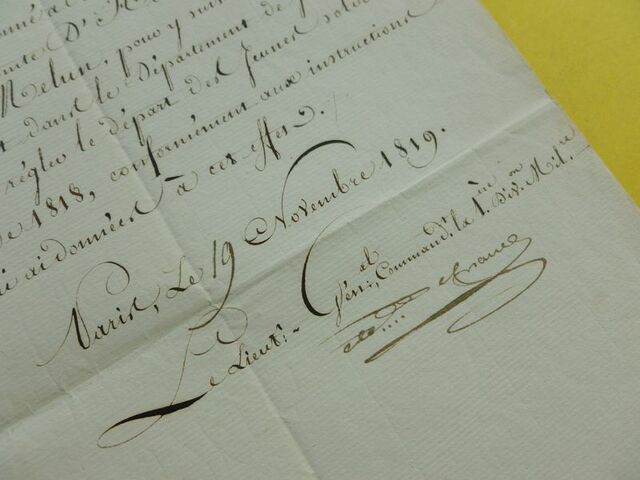 Melun, pour y
dans le Département de
régler le départ des jeunes soldats
de 1818, conformément aux instructions
ai données à cet effet.
Paris, Le 19 Novembre 1819.
Le Lieut.t
Gén.al Command.t la 1.ère Div.on M.re